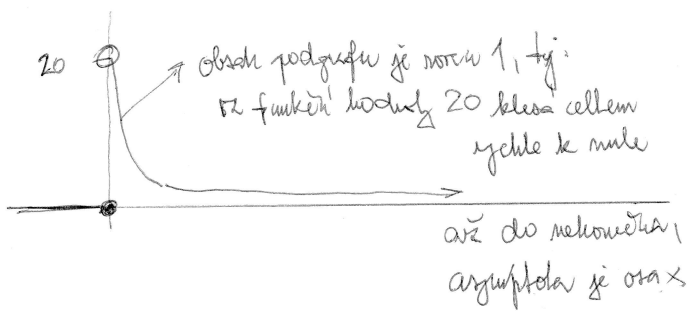 20
obsah podgrafu je roven 1, tj.
z funkční hodnoty 20 klesá celkem
rychle k nule
až do nekonečna,
asymptota je osa x